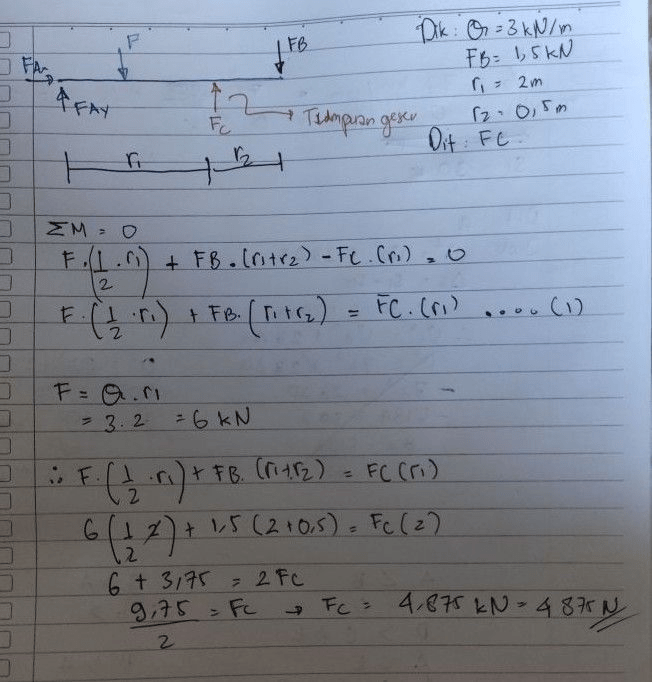 FAx
F
FB
FAY
FC
Tumpuan geser
r1
r2
Dik : Q = 3 kN/m
FB = 1,5 kN
r1 = 2m
r2 = 0,5m
Dit : FC.
ΣM = 0
F.(1/2 . r1) + FB.(r1+r2) - FC.(r1) = 0
F.(1/2 . r1) + FB.(r1+r2) = FC.(r1) .... (1)
F = Q.r1
= 3.2 = 6 kN
∴ F.(1/2 . r1) + FB.(r1+r2) = FC(r1)
6(1/2 2) + 1,5(2+0,5) = FC(2)
6 + 3,75 = 2FC
9,75/2 = FC → FC = 4,875 kN = 4875 N